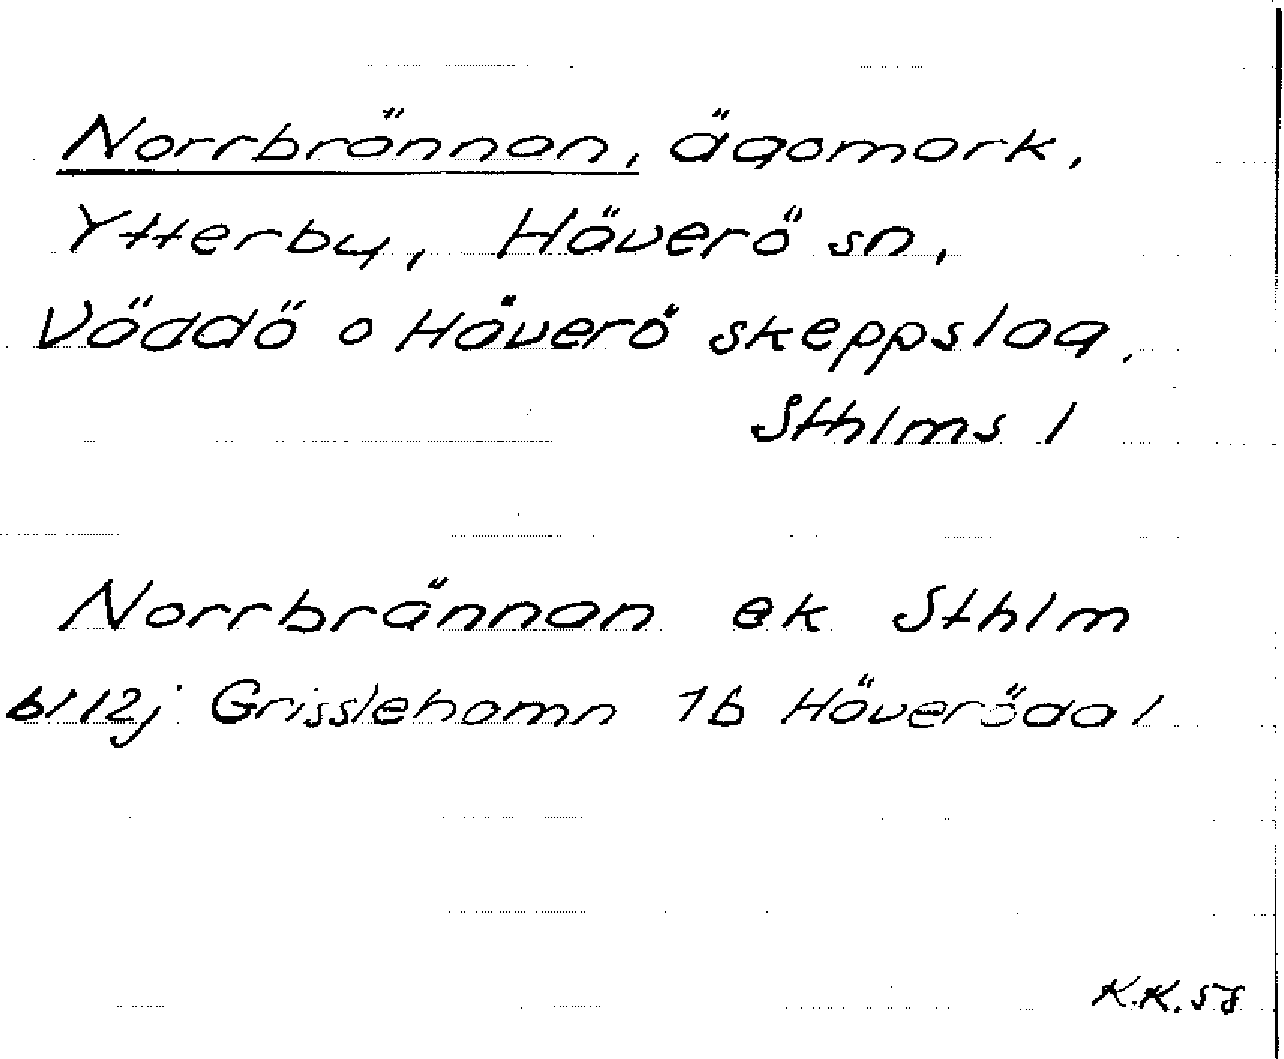 Norrbrännan, ägomark,
Ytterby, Häverö sn,
Väddö o Häverö skeppslag,
Sthlms l
Norrbrännan ek Sthlm
bl 12j Grisslehamn 1b Häverödal
K.K. 58